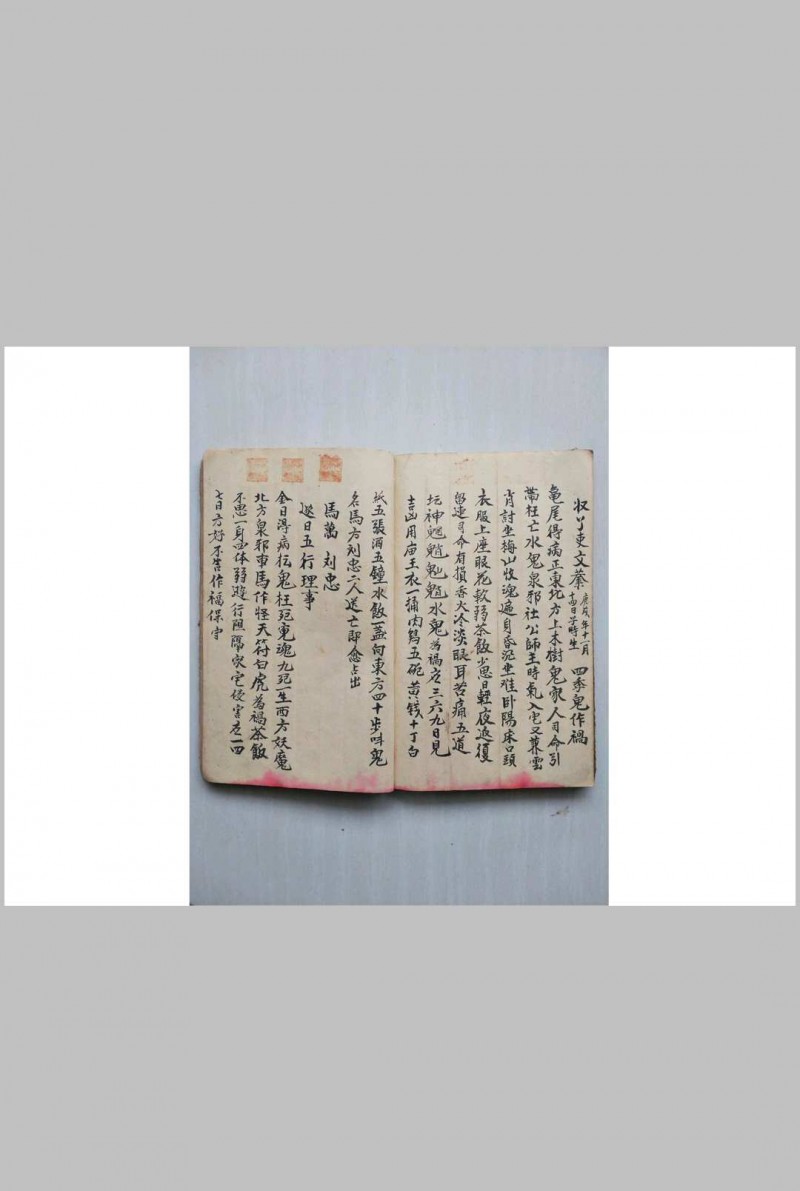 文蔡 庚戌年十一月 十六日子時生 四季鬼作禍
龜尾得病正東北方上木樹鬼家人司命引
帶枉亡水鬼泉邪社公師主時氣入宅又兼雲
肖討坐梅山收魂遍身昏沉坐难卧陽床口頭
衣服上座眼花軟弱茶飯少思日輕夜返復
留連司命有損香火冷淡眼耳苦痛五道
坛神 水鬼為禍庄三六九日見
吉凶用庙王衣一捅肉鸡五碗黄钱十丁白
紙五張酒五鐘水飯一盖向東方四十步呌鬼
名馬方刘忠二人送亡即愈占出
馬萬 刘忠
逐日五行理事
金日得病坛鬼枉死寃魂九死一生西方妖魔
北方泉邪車馬作怪天符白虎為禍茶飯
不思一身四体弱遊行阻隔家宅侵害庄一四
七日方好不吉作福保守